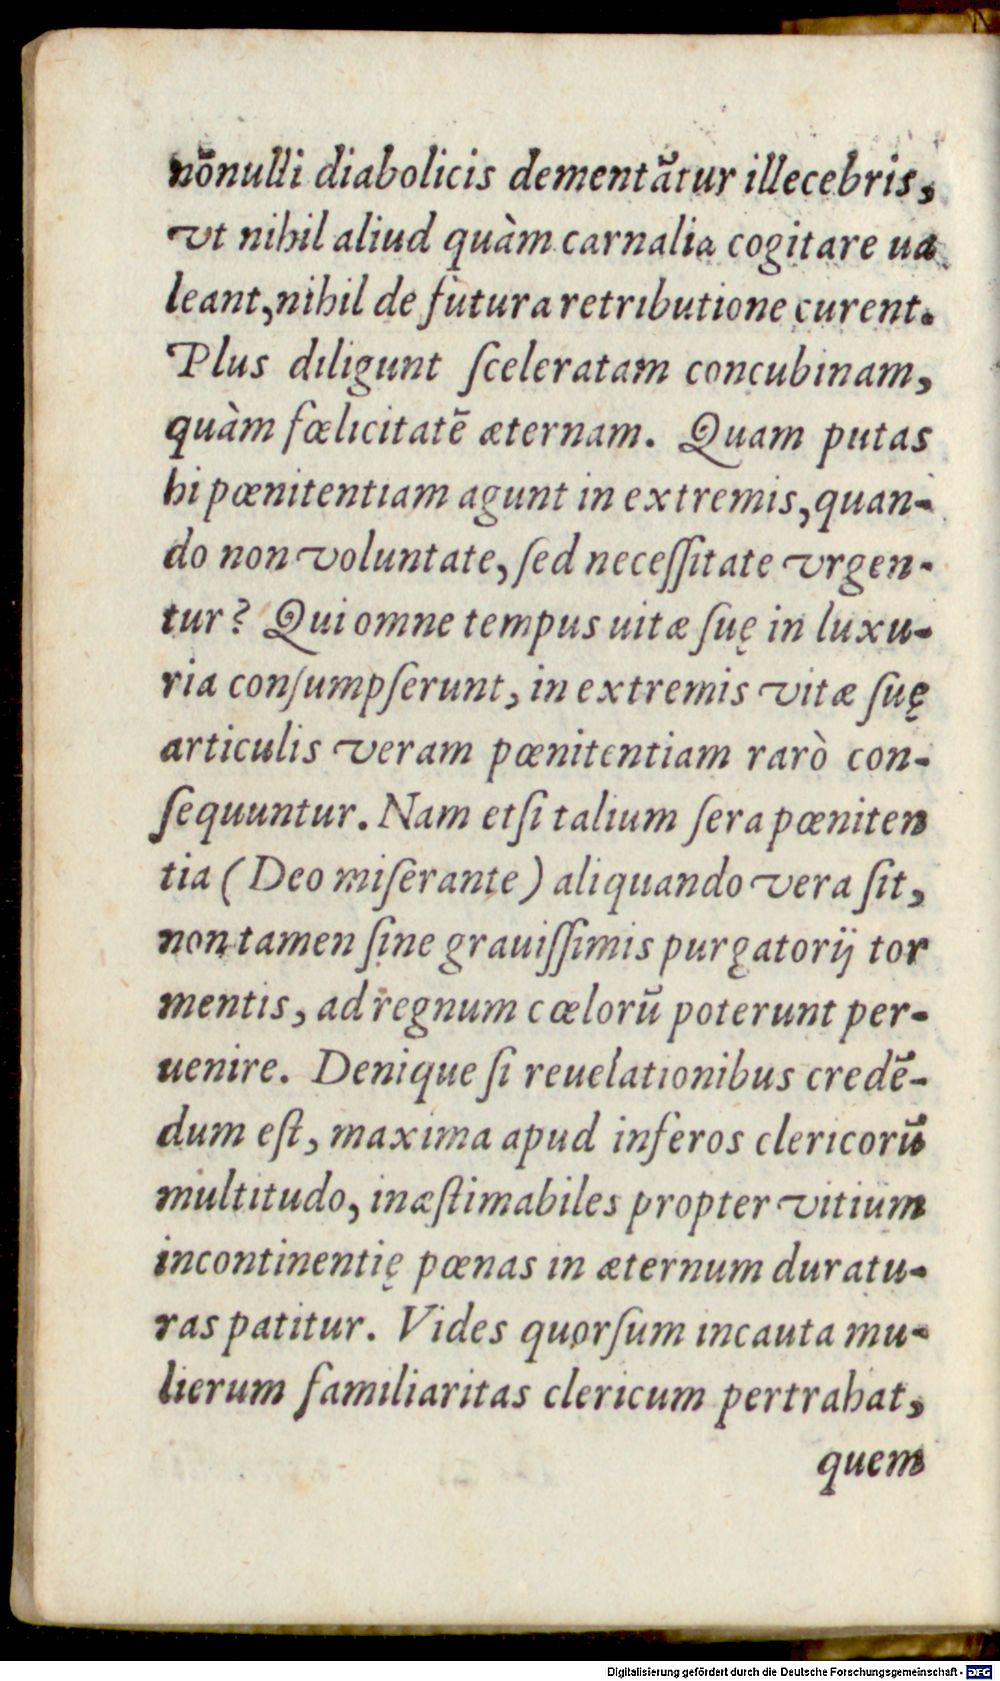 nõnulli diabolicis dementãtur illecebris,
vt nihil aliud quàm carnalia cogitare ua
leant, nihil de futura retributione curent.
Plus diligunt ſceleratam concubinam,
quàm fœlicitatẽ æternam. Quam putas
hi pœnitentiam agunt in extremis, quan-
do non voluntate, ſed neceſſitate vrgen-
tur? Qui omne tempus uitæ ſuę in luxu-
ria conſumpſerunt, in extremis vitæ ſuę
articulis veram pœnitentiam rarò con-
ſequuntur. Nam etſi talium ſera pœniten
tia (Deo miſerante) aliquando vera ſit,
non tamen ſine grauiſſimis purgatorij tor
mentis, ad regnum cœlorũ poterunt per-
uenire. Denique ſi reuelationibus credẽ-
dum eſt, maxima apud inferos clericorũ
multitudo, inæſtimabiles propter vitium
incontinentię pœnas in æternum duratu-
ras patitur. Vides quorſum incauta mu-
lierum familiaritas clericum pertrahat,
quem
Digitalisierung gefördert durch die Deutsche Forschungsgemeinschaft - DFG